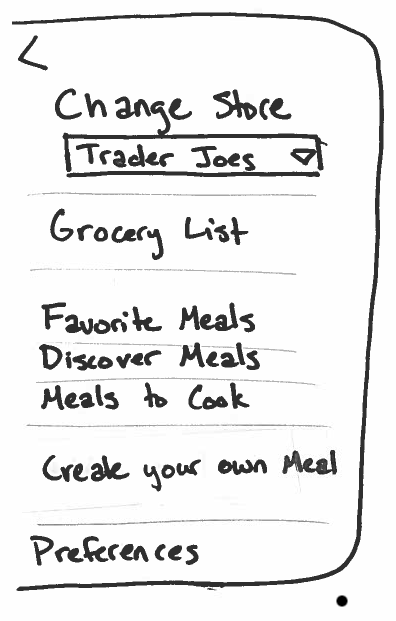 Change Store
Trader Joes
Grocery List
Favorite Meals
Discover Meals
Meals to Cook
Create your own Meal
Preferences